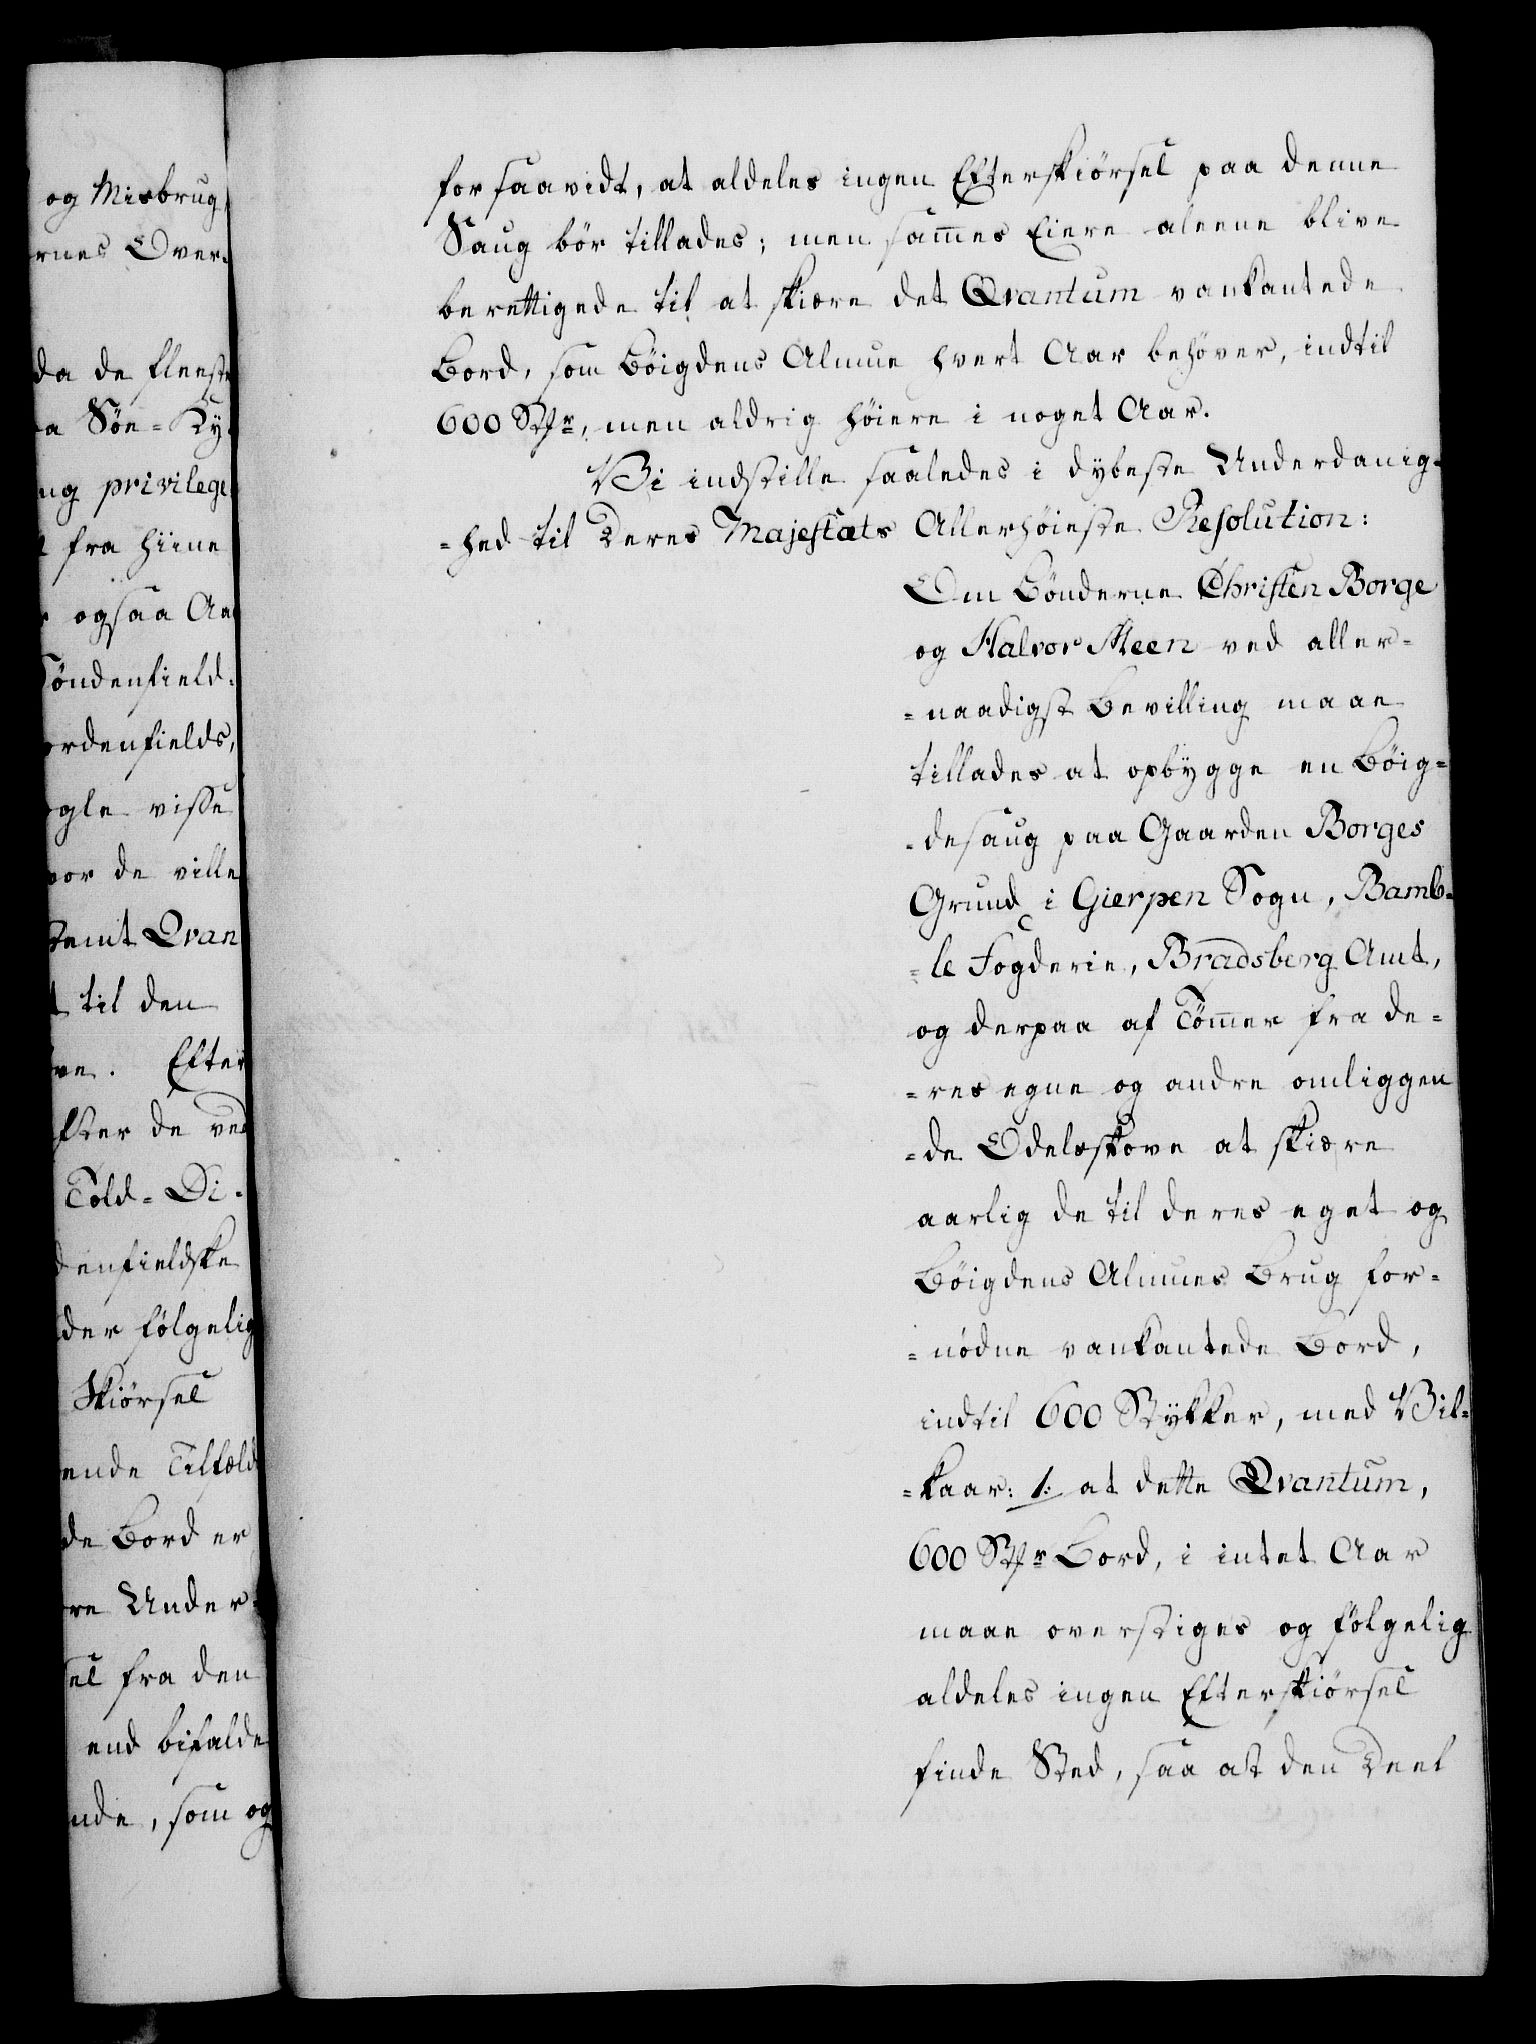 og Misbrug
rnes Over-
da de fleeste
a Söe-Ky
ug privilege
fra hiine
ogsaa An
Söndenfield-
ordenfields,
ogle visse
vor de ville
stemt Qvan
til den
ve. Efter
fter de ved
Told-Di-
denfieldske
der fölgelig
Skiörsel
ende Tilfæld
de Bord er
re Under-
sel fra den
end bifalde
nde, som og
for saavidt, at aldeles ingen Efterskiörsel paa denne
Saug bör tillades; men sam̄es Eiere aleene blive
berettigede til at skiære det Qvantum vankantede
Bord, som Böigdens Almue hvert Aar behöver, indtil
600 Stkr, men aldrig höiere i noget Aar.
Vi indstille saaledes i dybeste Underdanig-
=hed til Deres Majestæts Allerhöieste Resolution:
Om Bönderne Christen Borge
og Halvor Meen ved aller=
=naadigst Bevilling maae
tillades at opbygge en Böig=
=desaug paa Gaarden Borges
Grund i Gierpen Sogn, Bamb=
=le Fogderie, Bradsberg Amt,
og derpaa af Töm̄er fra de=
=res egne og andre omliggen
=de Odelsskove at skiære
aarlig de til deres eget og
Böigdens Almues Brug for=
=nödne vankantede Bord,
indtil 600 Stykker, med Vil=
=kaar: 1. at dette Qvantum,
600 Stkr Bord, i intet Aar
maae overstiges og fölgelig
aldeles ingen Efterskiörsel
finde Sted, saa at den Deel